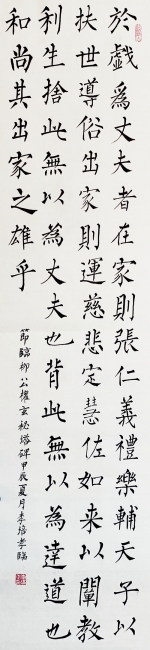 於戲為丈夫者在家則張仁義禮樂輔天子以
扶世導俗出家則運慈悲定慧佐如来以闡教
利生捨此無以為丈夫也背此無以為達道也
和尚其出家之雄乎
節臨柳公權玄秘塔碑甲辰夏月李培孝臨